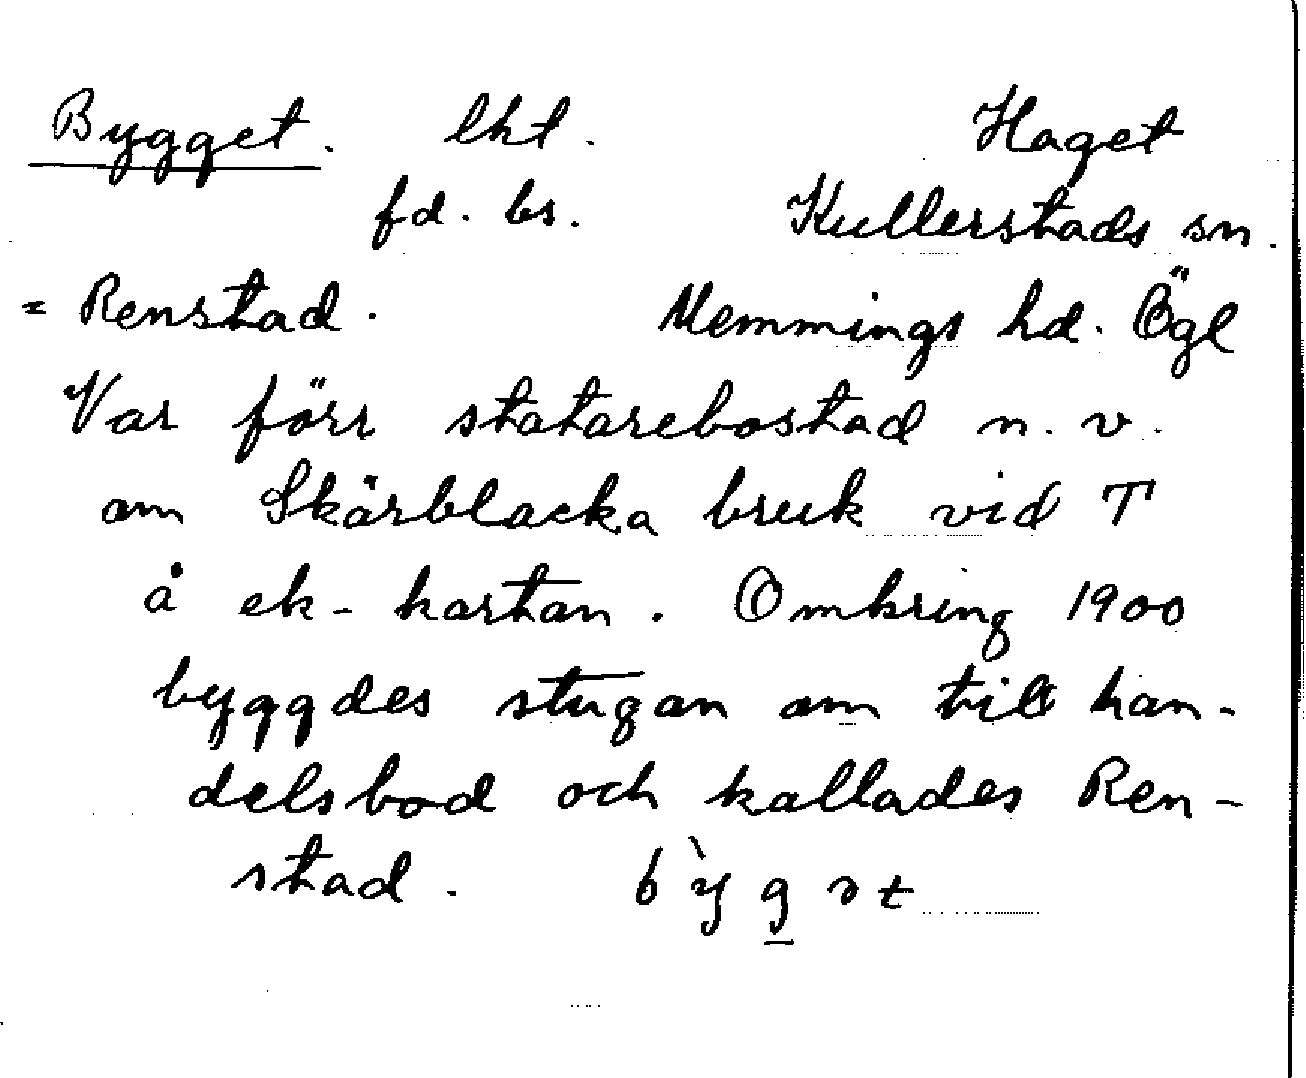 Bygget. lht. Haget
fd. bs. Kullerstads sn.
= Renstad. Memmings hd. Ögl
Var förr statarebostad n. v.
om Skärblacka bruk vid T
å ek-kartan. Omkring 1900
byggdes stugan om till han-
delsbod och kallades Ren-
stad.